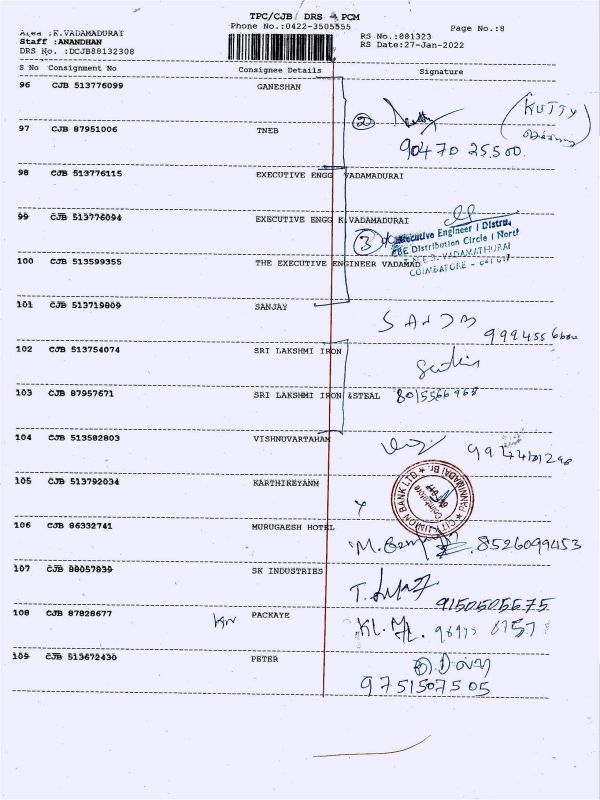 TPC/CJB DRS PCM
Phone No.:0422-3505555
Page No.:8
Area :K.VADAMADURAI
Staff :ANANDHAN
DRS No. :DCJB88132308
RS No.:881323
RS Date:27-Jan-2022
S No Consignment No Consignee Details Signature
96 CJB 513776099 GANESHAN
2
(KUTTY
97 CJB 87951006 TNEB
90470 25500
98 CJB 513776115 EXECUTIVE ENGG VADAMADURAI
99 CJB 513776094 EXECUTIVE ENGG K.VADAMADURAI
3
Executive Engineer | Distri.
CBE Distribution Circle | North
T.N.E.B. VADAMATHURAI
COIMBATORE - 641 017
100 CJB 513599355 THE EXECUTIVE ENGINEER VADAMAD
101 CJB 513719809 SANJAY
102 CJB 513754074 SRI LAKSHMI IRON
103 CJB 87957671 SRI LAKSHMI IRON &STEAL
8015566968
104 CJB 513582803 VISHNUVARTAHAM
105 CJB 513792034 KARTHIKEYANM
CITY UNION BANK LTD.
PANNIMADAI Br.
Coimbatore
106 CJB 86332741 MURUGAESH HOTEL
8526099453
107 CJB 88057839 SK INDUSTRIES
9150505675
108 CJB 87828677 PACKAYE
109 CJB 513672430 PETER
9751507505